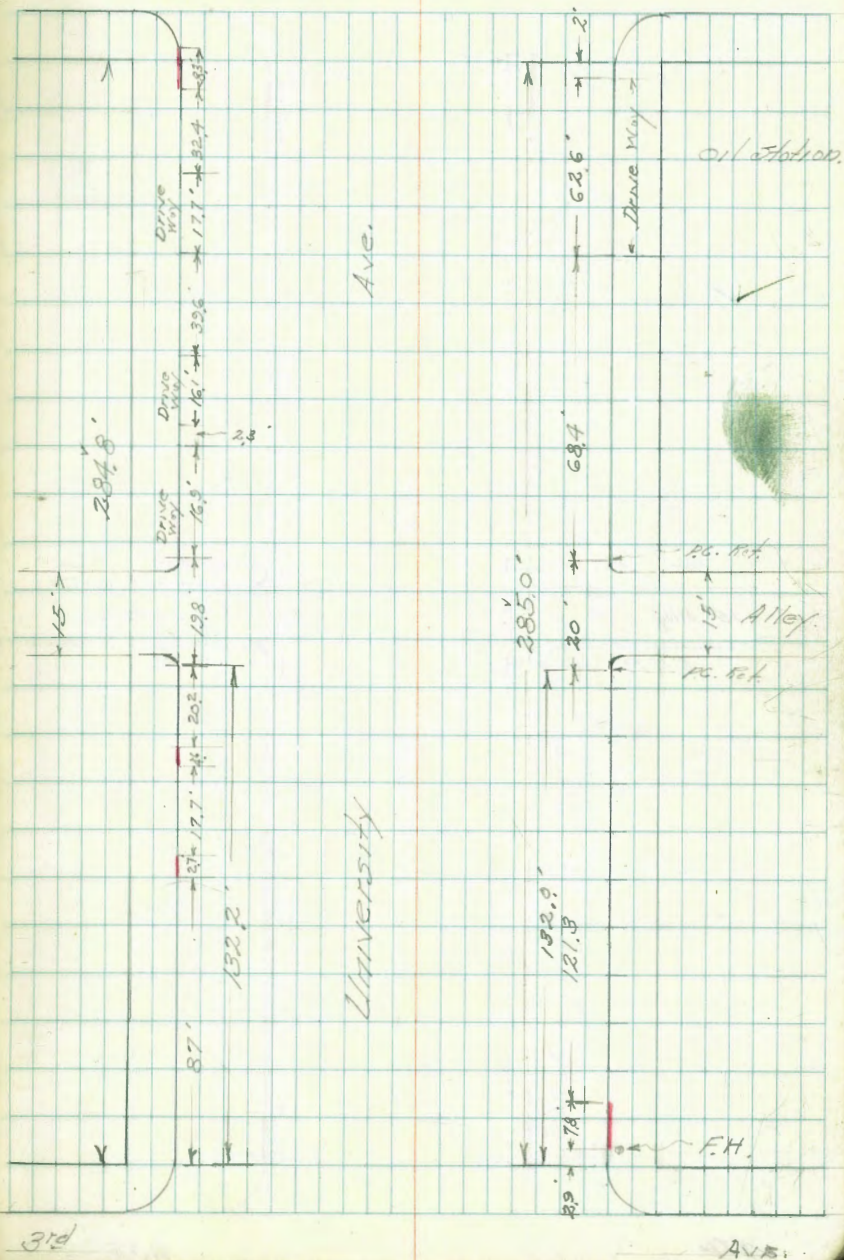 2'
8.3'
32.4
Drive
Way
17.7'
39.6'
Drive
Way
16.1'
2.3'
Drive
Way
16.9'
284.8'
15'
19.8'
20.2
4.6
17.7'
2.7
132.2'
87'
Ave.
University
62.6'
Drive Way
Oil Station.
68.4'
P.C. Ret.
285.0'
20'
15'
Alley.
P.C. Ret.
132.0'
121.3
7.8
F.H.
2.9
3rd
Ave.